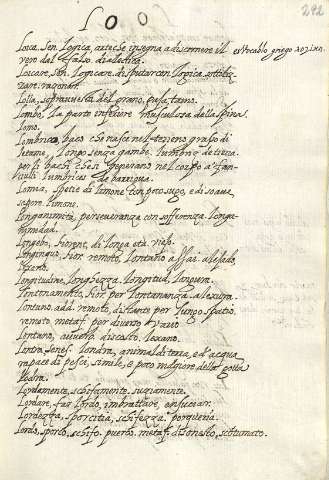 L O O
292
Loica, sen. Logica, arte che insegna a discernere il
vero dal falso. dialectica.
es vocablo griego
Loicare, sen. Logicare, disputar con logica,
zare. razonar.
Lolla, sopravvesta del grano, paja, tamo.
Lombo, La parte inferiore musculosa della spina.
Lomo.
Lombrico, baco che nasce nel terreno grasso di
letame, lungo senza gambe. Lumbriz de tierra.
per li bachi che si generano nel corpo a' fan-
ciulli. Lumbrices de barriga.
Lomia, spetie di limone con poco sugo, e di soave
sapore. limono.
Longanimità, perseveranza con sofferenza. Longa-
nimidad.
Longevo, di longa età. viejo.
Longinquo, remoto, lontano assai. alejado,
lexano.
Longitudine, Longhezza. Longitud, Longura.
Lontanamente, per Lontananza. a lexura.
Lontano, add. remoto, distante per lungo spatio,
remoto, metaf. per diverso, vario
Lontano, avverb. discosto, lexano.
Lontra, Londra, animal di terra, e d'acqua
rapace di pesci, simile, e poco maggiore della golpe
Lodra.
Lordamente, schifamente. suziamente.
Lordare, far lordo, imbrattare. ensuciar.
Lordezza, sporcitia, schifezza. porqueria.
Lordo, sporco, schifo. puerco. metaf. disonesto, scostumato.